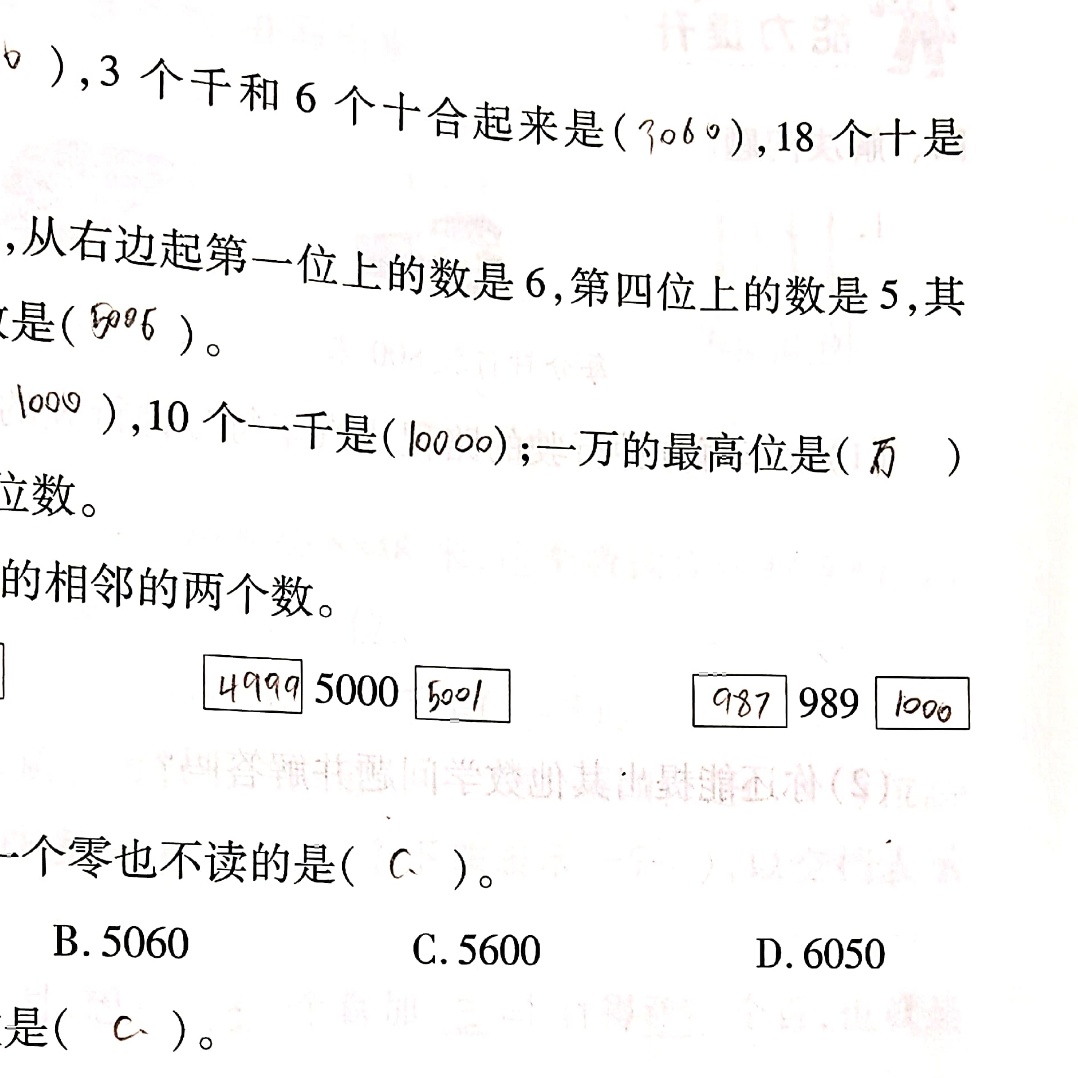 ),3 个千和 6 个十合起来是(3060),18 个十是
,从右边起第一位上的数是 6,第四位上的数是 5,其
是(5006)。
1000),10 个一千是(10000);一万的最高位是(万)
位数。
的相邻的两个数。
4999 5000 5001 987 989 1000
一个零也不读的是( C. )。
B. 5060 C. 5600 D. 6050
是( C. )。